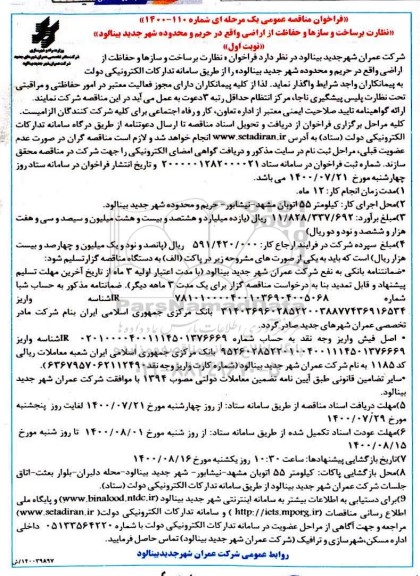 «فراخوان مناقصه عمومی یک مرحله ای شماره ۱۱۰-۱۴۰۰»
«نظارت برساخت و سازها و حفاظت از اراضی واقع در حریم و محدوده شهر جدید بینالود»
«نوبت اول»
شرکت عمران شهرجدید بینالود در نظر دارد فراخوان «نظارت برساخت و سازها و حفاظت از
اراضی واقع در حریم و محدوده شهر جدید بینالود» را از طریق سامانه تدارکات الکترونیکی دولت
به پیمانکاران واجد شرایط واگذار نماید. لذا از کلیه پیمانکاران دارای مجوز فعالیت معتبر در امور حفاظتی و مراقبتی
تحت نظارت پلیس پیشگیری ناجا، مرکز انتظام حداقل رتبه ۳ دعوت به عمل می آید در این مناقصه شرکت نمایند.
ارائه گواهینامه تایید صلاحیت ایمنی معتبر از اداره تعاون، کار و رفاه اجتماعی برای کلیه شرکت کنندگان الزامیست.
کلیه مراحل برگزاری فراخوان از دریافت و تحویل اسناد مناقصه تا ارسال دعوتنامه از طریق درگاه سامانه تدارکات
الکترونیکی دولت (ستاد) به آدرس www.setadiran.ir انجام خواهد شد و لازم است مناقصه گران در صورت عدم
عضویت قبلی، مراحل ثبت نام در سایت مذکور و دریافت گواهی امضای الکترونیکی را جهت شرکت در مناقصه محقق
سازند. شماره ثبت فراخوان در سامانه ستاد ۲۰۰۰۰۰۱۲۸۲۰۰۰۰۲۱ و تاریخ انتشار فراخوان در سامانه ستاد روز
چهارشنبه مورخ ۱۴۰۰/۰۷/۲۱ می باشد.
۱)مدت زمان انجام کار: ۱۲ ماه.
۲)محل اجرای کار: کیلومتر ۵۵ اتوبان مشهد-نیشابور- حریم و محدوده شهر جدید بینالود.
۳)مبلغ برآورد: ۱۱/۸۲۸/۳۳۷/۶۹۲ ریال (یازده میلیارد و هشتصد و بیست و هشت میلیون و سیصد و سی و هفت
هزار و ششصد و نود و دو ریال)
۴)مبلغ سپرده شرکت در فرایند ارجاع کار: ۵۹۱/۴۲۰/۰۰۰ ریال (پانصد و نود و یک میلیون و چهارصد و بیست
هزار ریال) است که باید به یکی از صورت های مشروحه زیر در پاکت (الف) به دستگاه مناقصه گزار تسلیم شود:
*ضمانتنامه بانکی به نفع شرکت عمران شهر جدید بینالود (با مدت اعتبار اولیه ۳ ماه از تاریخ آخرین مهلت تسلیم
پیشنهاد و قابل تمدید بنا به درخواست مناقصه گزار برای یک مدت ۳ ماهه دیگر). ضمانتنامه مذکور به حساب شبا
تخصصی عمران شهرهای جدید صادر گردد.
* اصل فیش واریز وجه نقد به حساب شماره
کد ۱۱۸۵ به نام شرکت عمران شهر جدید بینالود
*سایر تضامین قانونی طبق آیین نامه تضمین معاملات دولتی مصوب ۱۳۹۴ با موافقت شرکت عمران شهر جدید
بینالود.
۵)مهلت دریافت اسناد مناقصه از طریق سامانه ستاد: از روز چهارشنبه مورخ ۱۴۰۰/۰۷/۲۱ لغایت روز پنجشنبه
مورخ ۱۴۰۰/۰۷/۲۹
۶)مهلت عودت اسناد تکمیل شده از طریق سامانه ستاد: از روز شنبه مورخ ۱۴۰۰/۰۸/۰۱ تا روز شنبه مورخ
۱۴۰۰/۰۸/۱۵
۷)تاریخ بازگشایی پیشنهادها: ساعت ۱۰:۳۰ روز یکشنبه مورخ ۱۴۰۰/۰۸/۱۶
۸)محل بازگشایی پاکات: کیلومتر ۵۵ اتوبان مشهد-نیشابور- شهر جدید بینالود-محله دلبران-بلوار بعثت-اتاق
جلسات شرکت عمران شهر جدید بینالود.
۹)برای دستیابی به اطلاعات بیشتر به سامانه اینترنتی شهر جدید بینالود (www.binalood.ntdc.ir) و پایگاه ملی
اطلاع رسانی مناقصات (http://iets.mporg.ir) و سامانه تدارکات الکترونیکی دولت (www.setadiran.ir)
مراجعه و جهت آگاهی از مراحل عضویت در سامانه تدارکات الکترونیکی دولت با شماره ۰۵۱۳۳۵۶۴۲۲۰ داخلی
اداره مسکن، شهرسازی و ترافیک (شرکت عمران شهر جدید بینالود) تماس حاصل فرمایید.
روابط عمومی شرکت عمران شهرجدیدبینالود